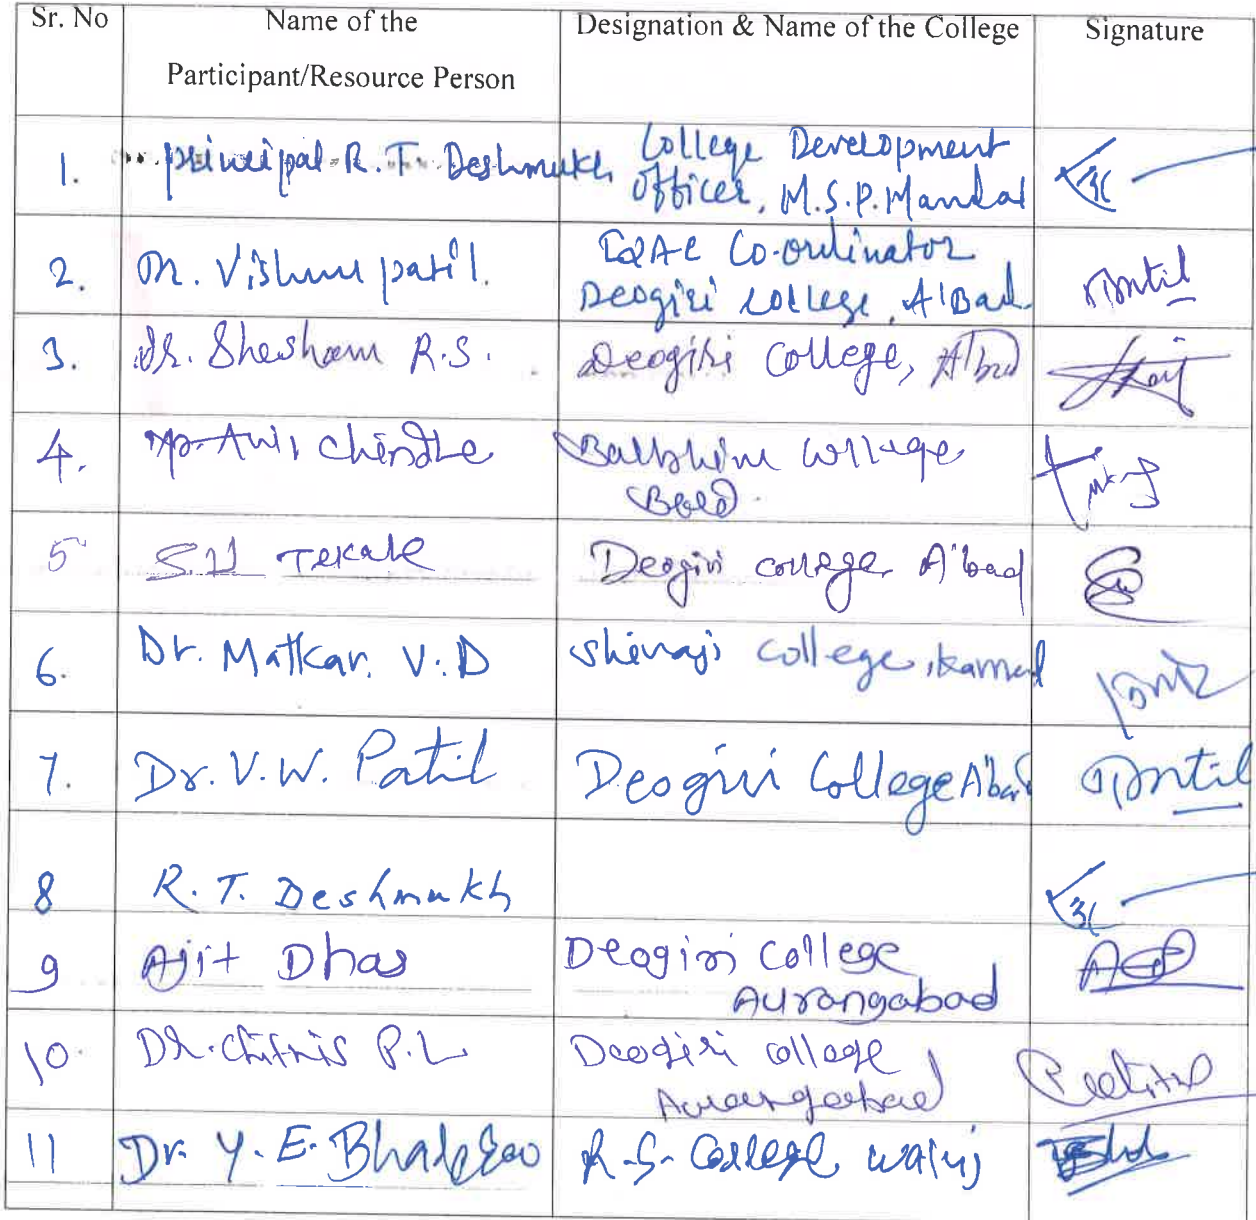 Sr. No
Name of the
Participant/Resource Person
Designation & Name of the College
Signature
1.
Principal R. T. Deshmukh
College Development
Officer, M.S.P. Mandal
2.
Vishnu patil.
IQAC Co-ordinator
Deogiri College, A'Bad
3.
Dr. Shesham R.S.
Deogiri College, A'bad
4.
Chindhe
Balbhim College
Beed.
5
S.U Tekale
Deogiri college A'bad
6.
Dr. Matkar. V.D
Shivaji College, Kannad
7.
Dr. V. W. Patil
Deogiri College A'bad
8
R. T. Deshmukh
9
Ajit Dhas
Deogiri College
Aurangabad
10.
Dr. Chitnis P. L
Deogiri College
Aurangabad
11
Dr. Y. E. Bhalerao
R.S. College